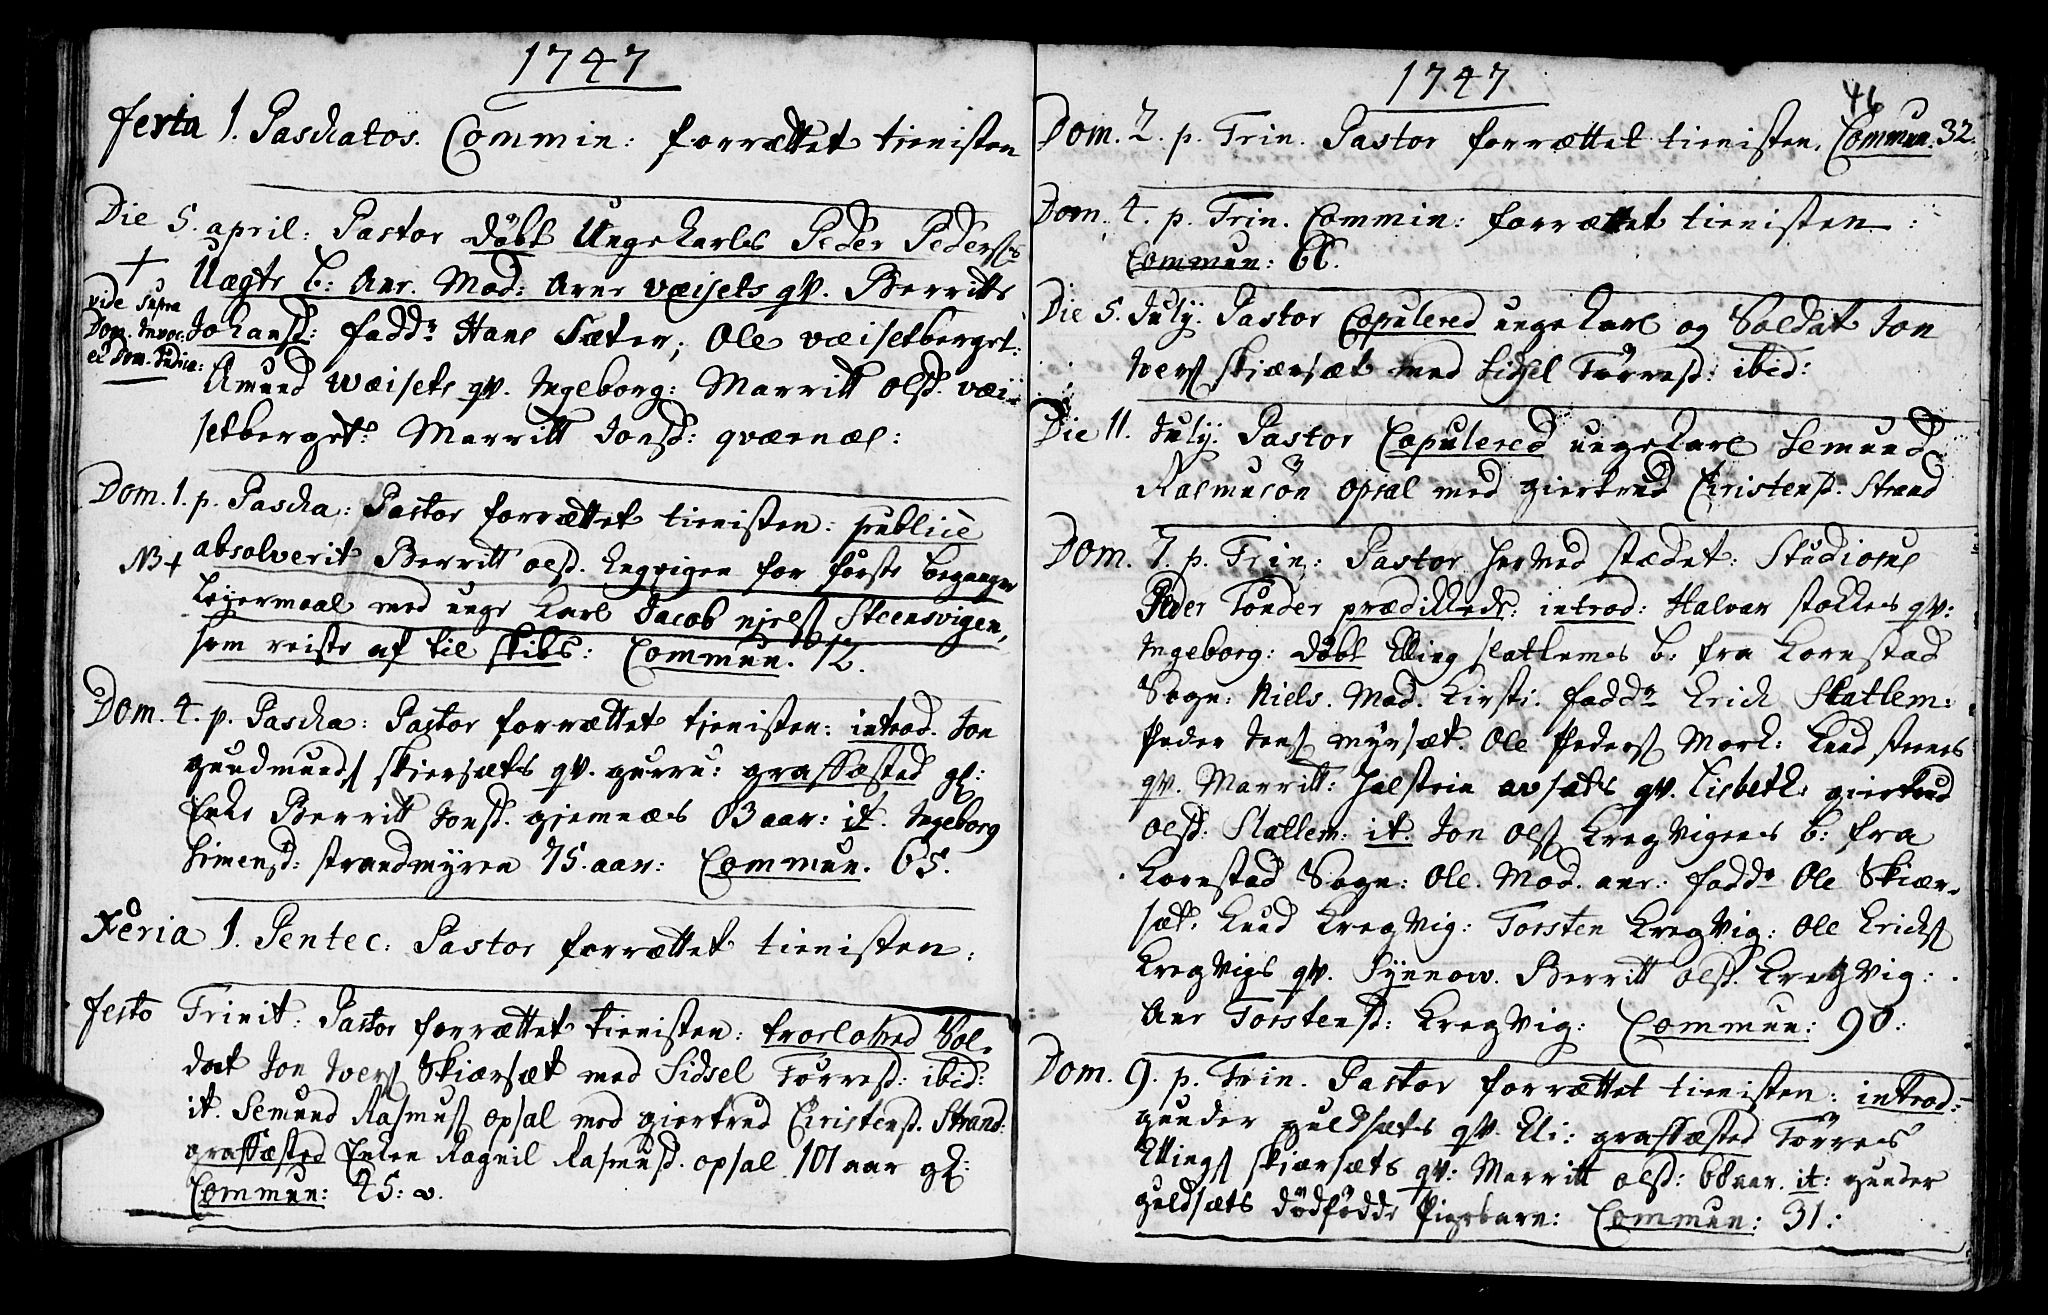 1747
festa 1. Paschatos. Commin: forrættet tienisten
Die 5. april: Pastor døbt Unge karls Peder Peders
+ Uægte b: Anr. Mod: Arnr væisets qv. Berritte
vide supra
Dom. Invoc: Johansd: fadd Hans Sæter; Ole væisetberget:
et Dom. Judica:
Amund wæisets qv. Ingeborg: Marritt olsd. væi-
setberget: Marritt Jonsd: qværnæs:
Dom. 1. p. Pascha: Pastor forrættet tienisten: publicè
NB + absolverit Berritt olsd. Engvigen for første begangne
Leyermaal med unge karl Jacob njels Steensvigen,
som reiste af til skibs: Commun. 12.
Dom. 4. p. Pascha: Pastor forrættet tjenisten: introd. Jon
gundmunds skiersæts qv. gurru: graffæsted gl:
Enke Berritt Jonsd. gjemnæs 83 aar: it. Ingeborg
Simensd: strandmyren 75. aar: Commun. 65.
Feria 1. Pentec: Pastor forrættet tienisten:
festo Trinit: Pastor forrættet tienisten: trorlofved Sol-
dat Jon Ivers Skiærsæt med Sidsel Torresd: ibid:
it. Semund Rasmus opsal med giertrud Christensd. Strand:
graffæsted Enken Ragnil Rasmusd. opsal 101 aar gl:
Commun: 45:
1747
46
Dom. 2. p. Trin. Pastor forrættet tienisten. Commun. 32.
Dom. 4. p. Trin. Commin: forrættet tienisten:
Commun: 66.
Die 5. July. Pastor Copulered unge karl og Soldat Jon
Ivers skiærsæt med Sidsel Torresd: ibid:
Die 11. July. Pastor Copulered unge karl Semund
Rasmusøn opsal med giertrud Christensd. Strand
Dom. 7. p. Trin: Pastor herved stædet: Studiosus
Peder Tønder prædikkede: introd: Halvar stokkes qv:
Ingeborg: døbt Elling slatlemes b: fra Kornstad
Sogn: Niels. Mod. Kirsti. fadd Erich Slatlem:
Peder Jens myrsæt. Ole Peders Mork: Knud steenes
qv. Marritt: Halstein avsæts qv. Lisbeth: giertrud
olsd: Slatlem: it. Jon ols Kregvigens b: fra
Kornstad Sogn: Ole. Mod. anr: fadd Ole Skiær-
sæt. Knud Kregvig: Torsten Kregvig: Ole Erichs
Kregvigs qv. Synnow. Berritt olsd. Kregvig:
Anr Torstensd: Kregvig: Commun: 90:
Dom. 9. p. Trin. Pastor forrættet tienisten: introd:
gunder guldsæts qv. Eli: graffæsted Torres
Ellings skiærsæts qv: Marritt olsd: 68 aar. it: gunder
guldsæts dødfødde Pigebarn: Commun: 31: